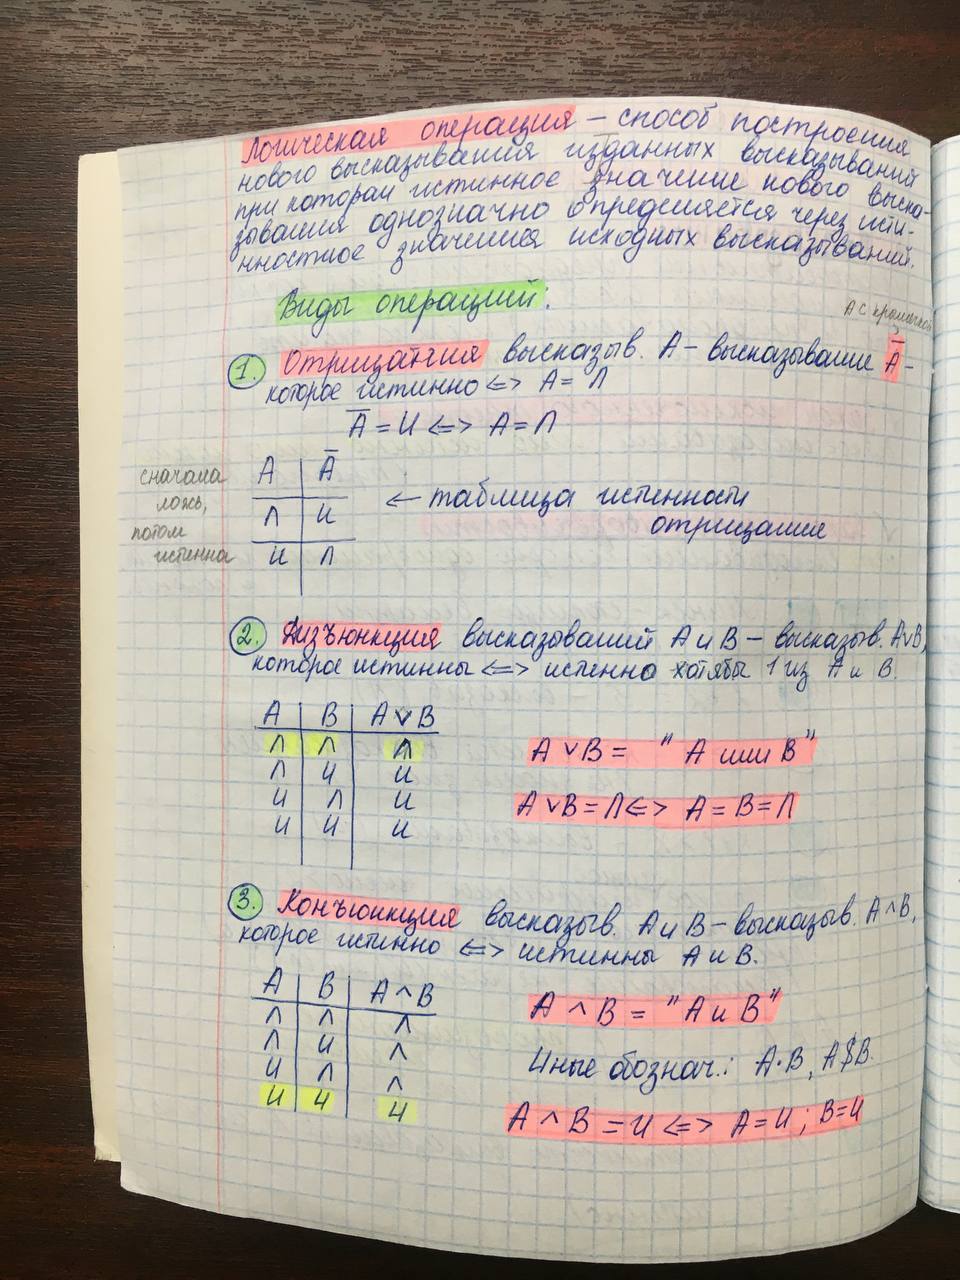 Логическая операция — способ построения
нового высказывания изданных высказываний
при котором истинное значение нового выска-
зывания однозначно определяется через исти-
нностное значения исходных высказываний.
Виды операций:
А с крышечкой
1. Отрицания высказыв. А — высказывание Ā —
которое истинно <=> А = Л
Ā = И <=> А = Л
сначала
ложь,
потом
истенна
А | Ā
Л | И
И | Л
← таблица истенности
отрицание
2. Дизъюнкция высказываний А и В — высказыв. А∨В,
которое истинны <=> истенно хотябы 1 из А и В.
А | В | А ∨ В
Л | Л | Л
Л | И | И
И | Л | И
И | И | И
А ∨ В = " А или В"
А ∨ В = Л <=> А = В = Л
3. Конъюнкция высказыв. А и В — высказыв. А ∧ В,
которое истинно <=> истинны А и В.
А | В | А ∧ В
Л | Л | Л
Л | И | Л
И | Л | Л
И | И | И
А ∧ В = "А и В"
Иные обознач.: А·В, А$В.
А ∧ В = И <=> А = И ; В = И